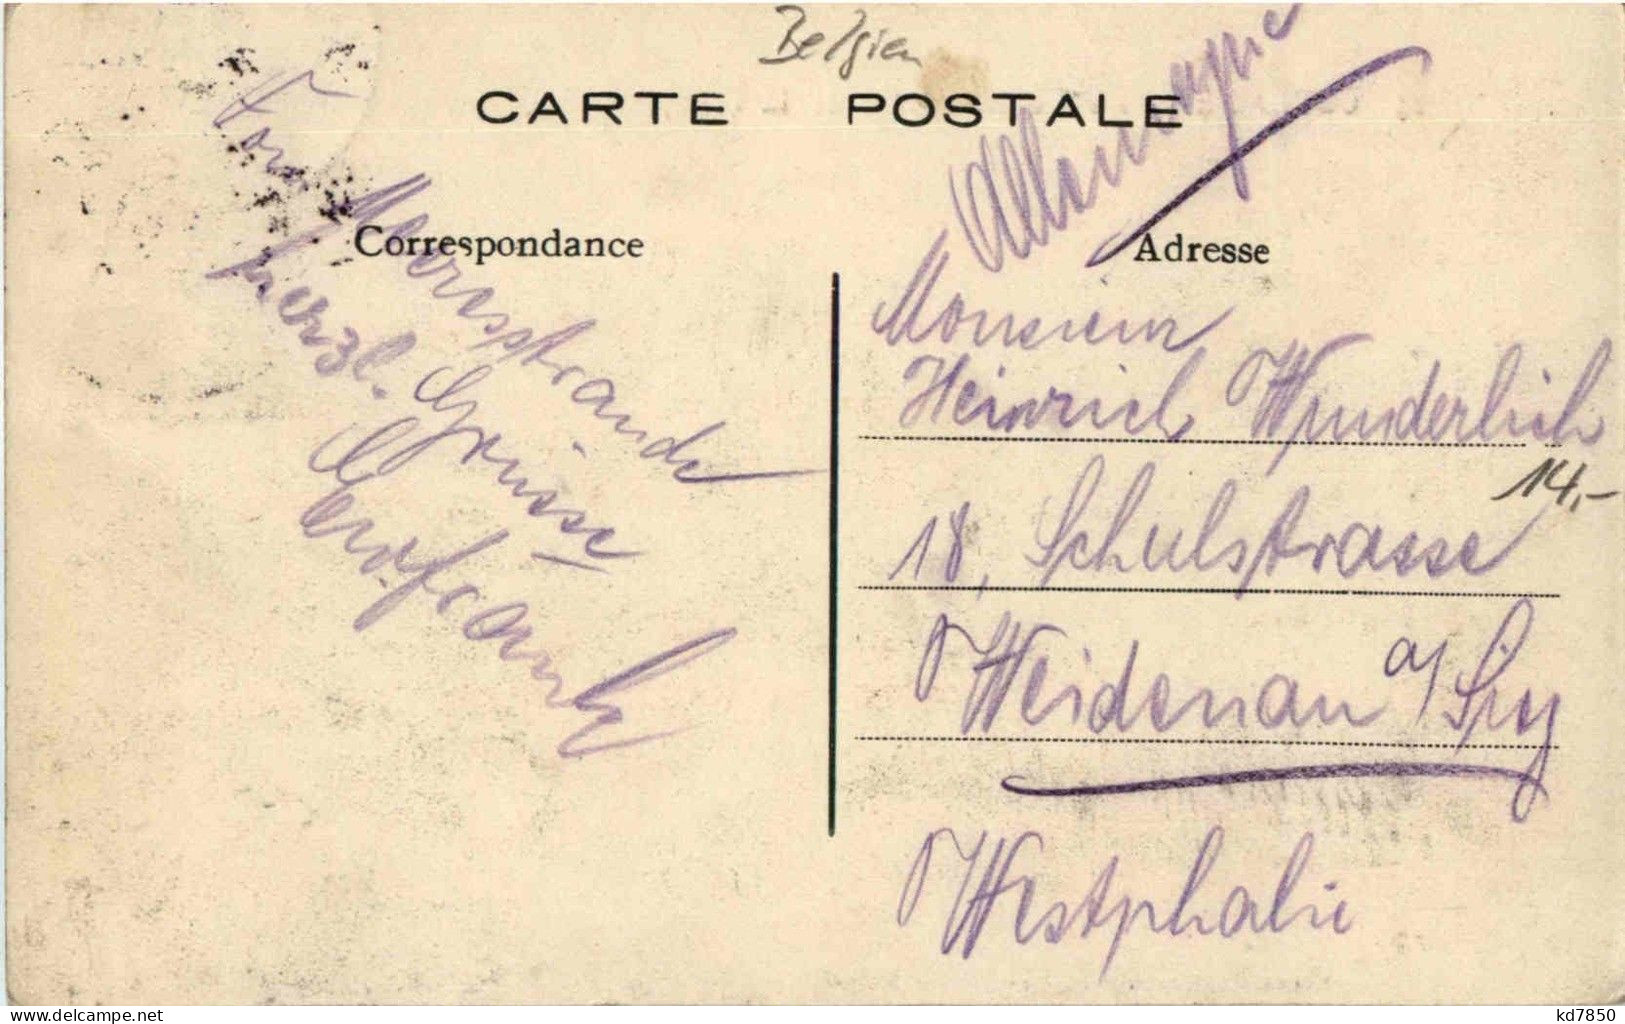 Belgien
CARTE POSTALE
Allemagne
Correspondance
Adresse
Vom
Meeresstrande
herzl. Grüsse
Monsieur
Heinrich Wunderlich
14,-
18, Schulstrasse
Weidenau a/ Sieg
Westphalie
delcampe.net
kd7850